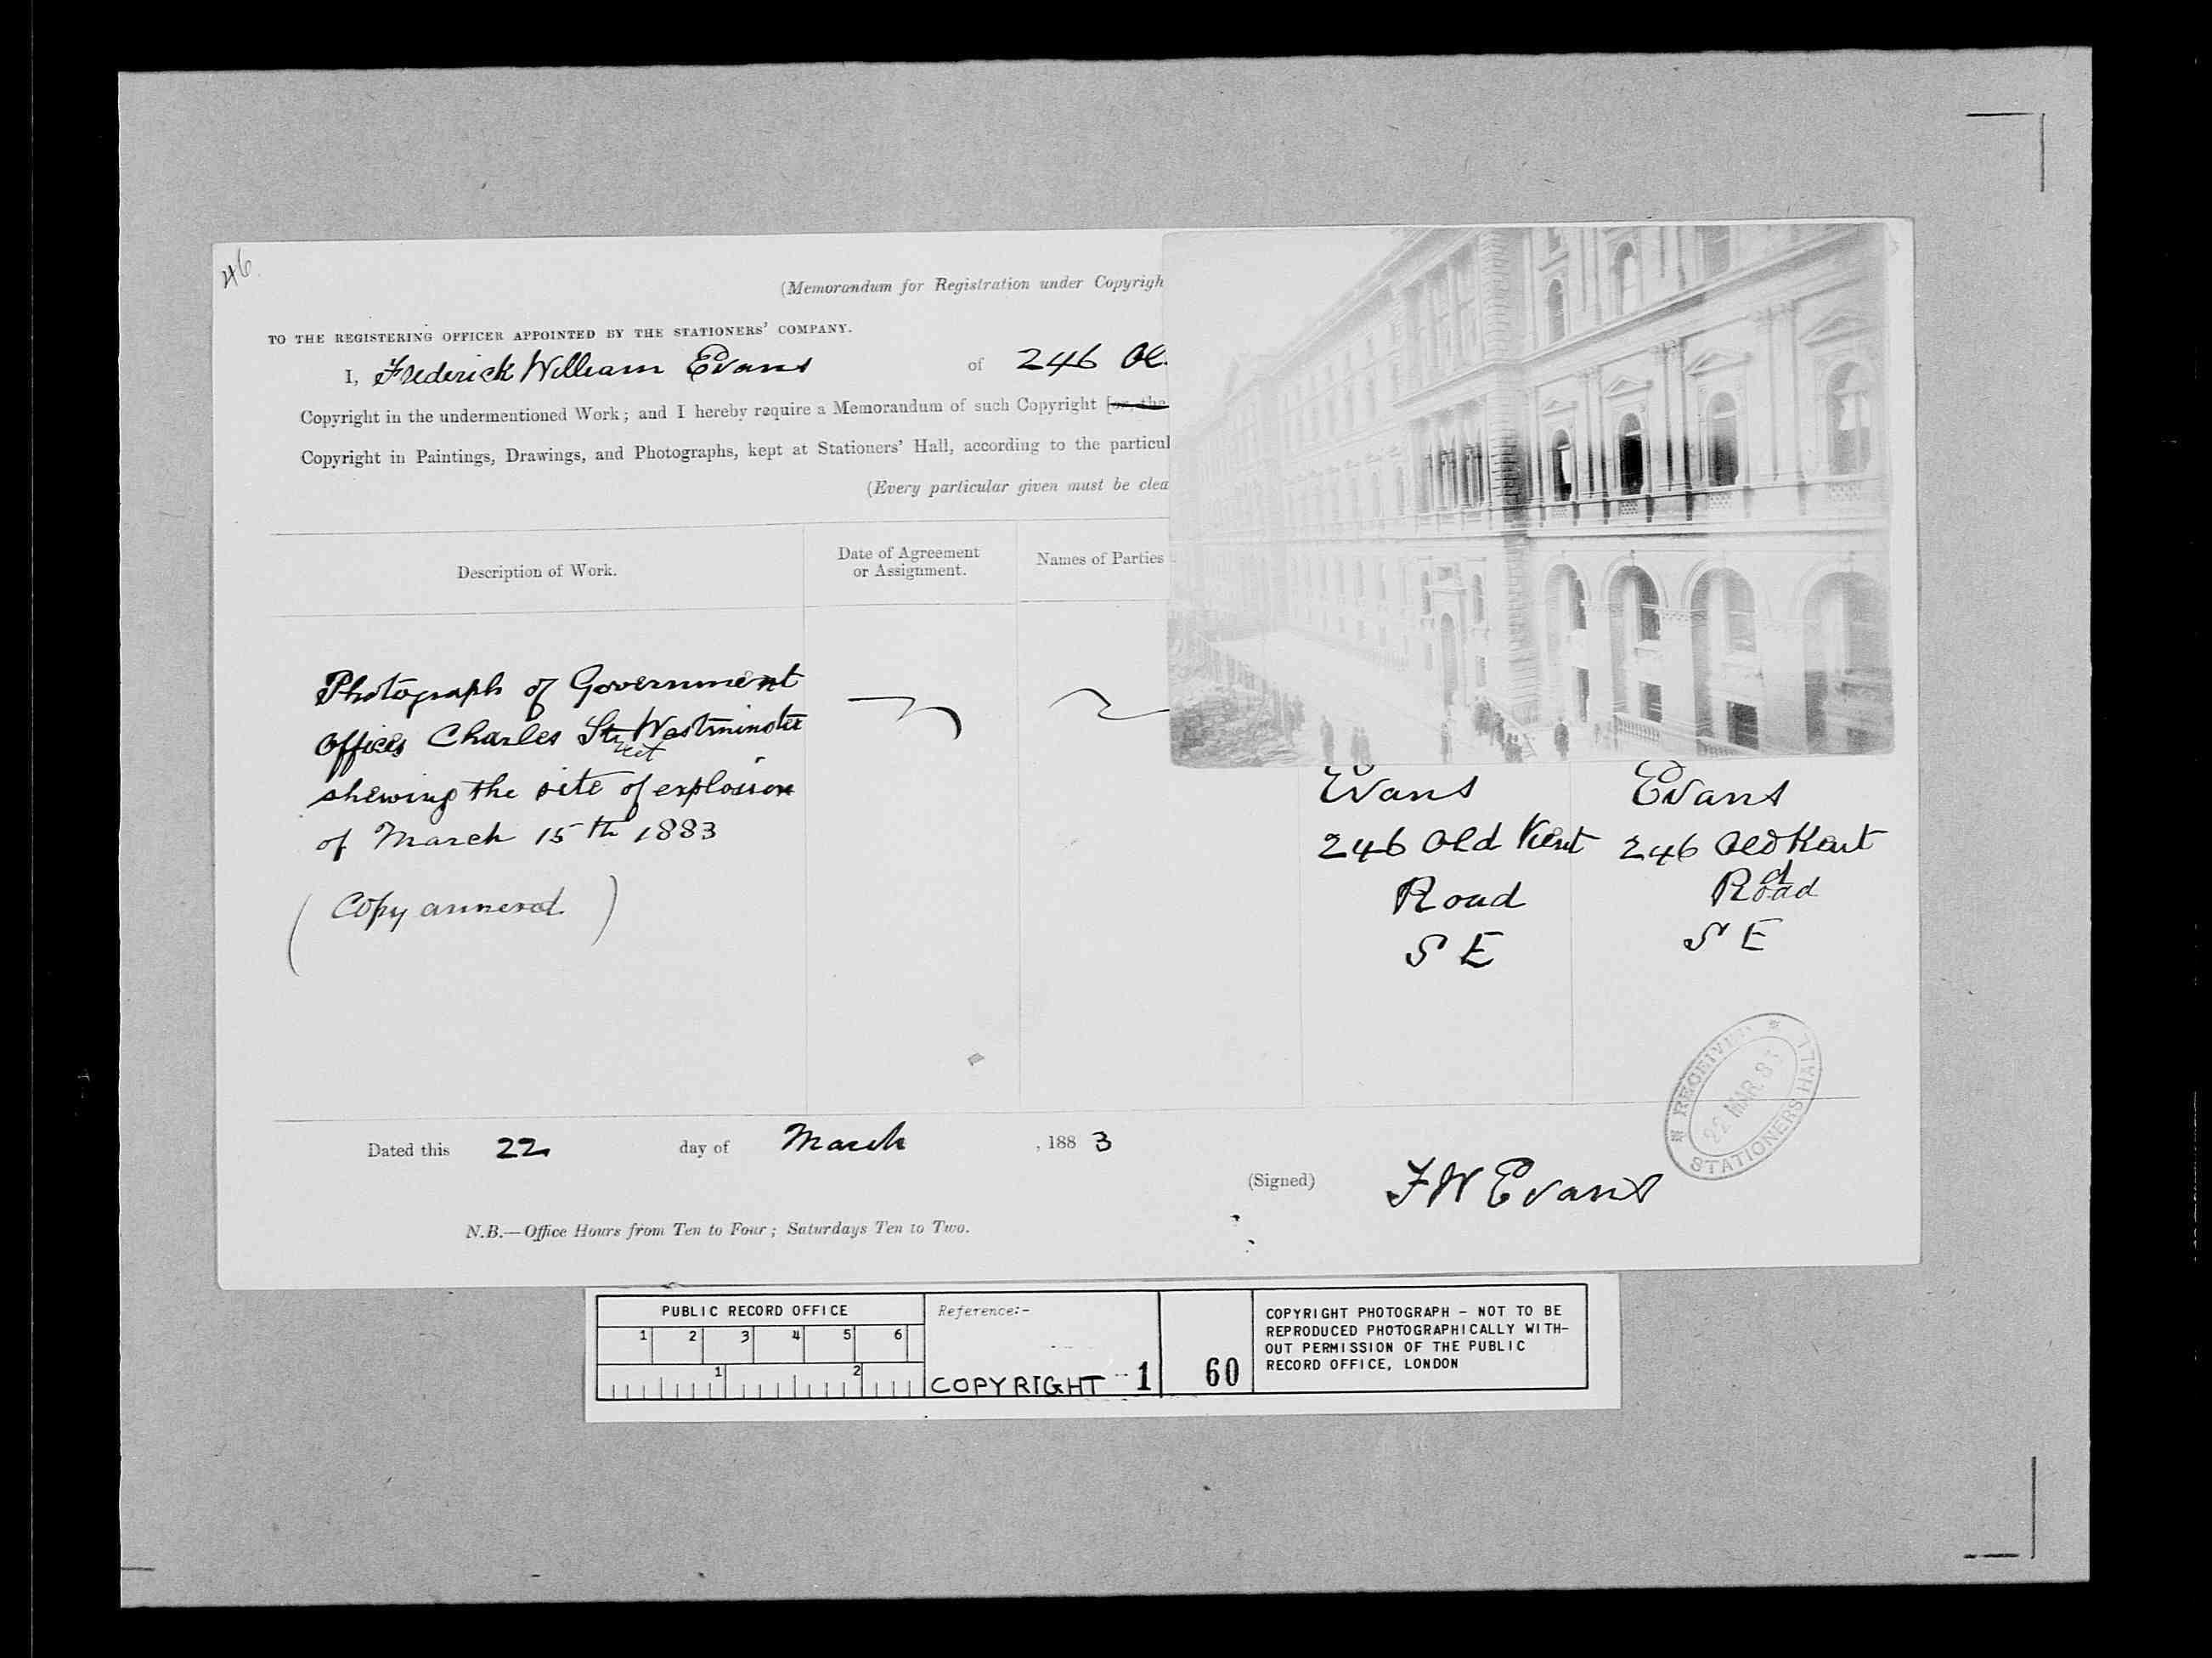 46
(Memorandum for Registration under Copyrigh
TO THE REGISTERING OFFICER APPOINTED BY THE STATIONERS' COMPANY.
I, Frederick William Evans of 246 Ol
Copyright in the undermentioned Work; and I hereby require a Memorandum of such Copyright [or, the
Copyright in Paintings, Drawings, and Photographs, kept at Stationers' Hall, according to the particul
(Every particular given must be clea
Description of Work.
Date of Agreement
or Assignment.
Names of Parties
Photograph of Government
Offices Charles Street Westminster
shewing the site of explosion
of March 15th 1883
(Copy annexed)
Evans
246 Old Kent
Road
S E
Evans
246 Old Kent
Road
S E
RECEIVED
22 MAR. 83
STATIONERS HALL
Dated this 22 day of March, 1883
(Signed) F W Evans
N.B.—Office Hours from Ten to Four; Saturdays Ten to Two.
PUBLIC RECORD OFFICE
1 2 3 4 5 6
1 2
Reference:-
COPYRIGHT 1
60
COPYRIGHT PHOTOGRAPH - NOT TO BE
REPRODUCED PHOTOGRAPHICALLY WITH-
OUT PERMISSION OF THE PUBLIC
RECORD OFFICE, LONDON